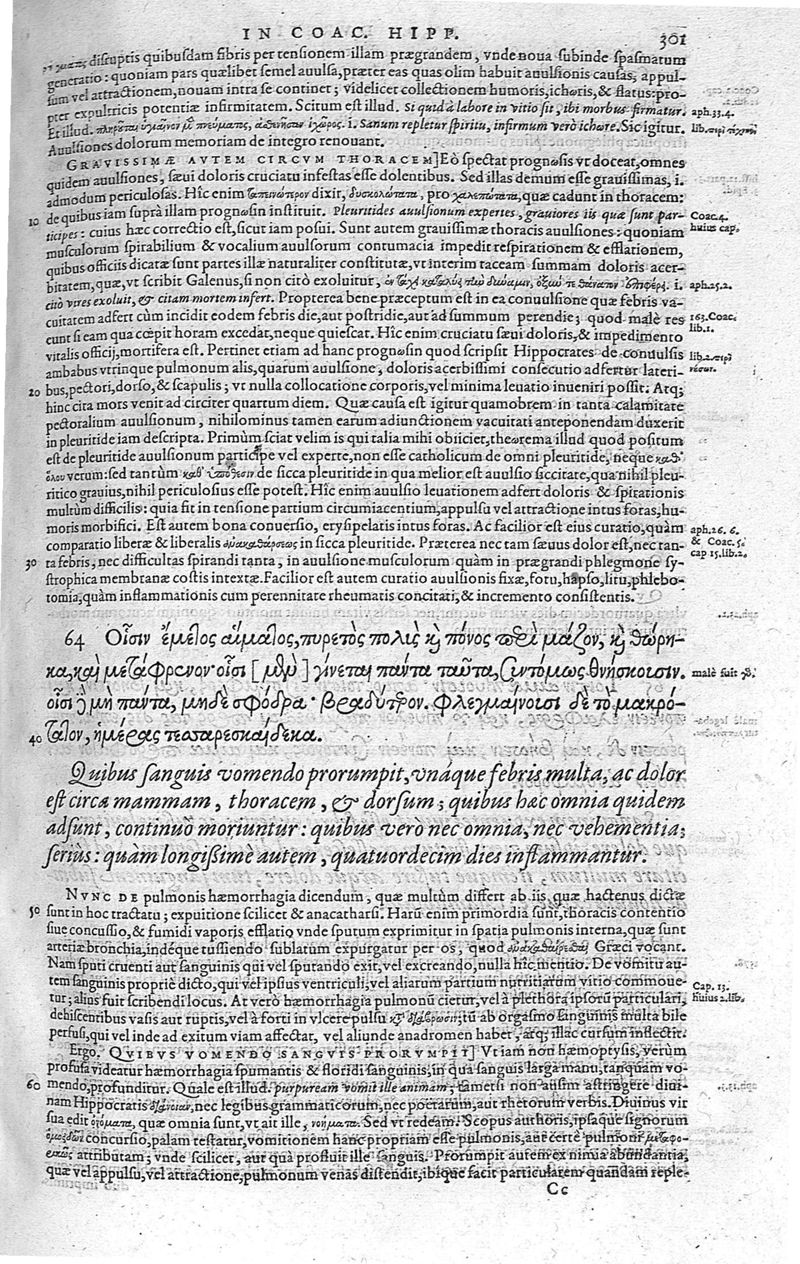 IN COAC. HIPP. 301
disruptis quibusdam fibris per tensionem illam prægrandem, vnde noua subinde spasmatum
generatio: quoniam pars quælibet semel auulsa, præter eas quas olim habuit auulsionis causas, appul-
sum vel attractionem, nouam intra se continet; videlicet collectionem humoris, ichoris, & flatus: pro-
pter expultricis potentiæ infirmitatem. Scitum est illud. Si quid à labore in vitio sit, ibi morbus firmatur. aph. 33. 4.
Et illud. i. Sanum repletur spiritu, infirmum verò ichore. Sic igitur.
Auulsiones dolorum memoriam de integro renouant.
GRAVISSIMÆ AVTEM CIRCVM THORACEM] Eò spectat prognωsis vt doceat, omnes
quidem auulsiones, sæui doloris cruciatu infestas esse dolentibus. Sed illas demum esse grauissimas, i.
admodum periculosas. Hîc enim ταπεινώτερον dixit, δυσκολώτατα, pro χαλεπώτατα, quæ cadunt in thoracem:
10 de quibus iam suprà illam prognωsin instituit. Pleuritides auulsionum expertes, grauiores iis quæ sunt par- Coac. 4.
ticipes: cuius hæc correctio est, sicut iam posui. Sunt autem grauissimæ thoracis auulsiones: quoniam huius cap.
musculorum spirabilium & vocalium auulsorum contumacia impedit respirationem & efflationem,
quibus officiis dicatæ sunt partes illæ naturaliter constitutæ, vt interim taceam summam doloris acer-
bitatem, quæ, vt scribit Galenus, si non citò exoluitur, i. aph. 25. 2.
citò vires exoluit, & citam mortem infert. Propterea bene præceptum est in ea conuulsione quæ febris va-
cuitatem adfert cùm incidit eodem febris die, aut postridie, aut ad summum perendie; quod malè res 163. Coac.
cunt si eam qua cœpit horam excedat, neque quiescat. Hîc enim cruciatu sæui doloris, & impedimento lib. 1.
vitalis officij, mortifera est. Pertinet etiam ad hanc prognωsin quod scripsit Hippocrates de conuulsis lib. 2. περὶ
ambabus vtrinque pulmonum alis, quarum auulsione, doloris acerbissimi consecutio adfertur lateri-
20 bus, pectori, dorso, & scapulis; vt nulla collocatione corporis, vel minima leuatio inueniri possit: Atq;
hinc cita mors venit ad circiter quartum diem. Quæ causa est igitur quamobrem in tanta calamitate
pectoralium auulsionum, nihilominus tamen earum adiunctionem vacuitati anteponendam duxerit
in pleuritide iam descripta. Primùm sciat velim is qui talia mihi obiiciet, theωrema illud quod positum
est de pleuritide auulsionum participe vel experte, non esse catholicum de omni pleuritide, neque καθ'
ὅλου verum: sed tantùm καθ' ὑπόθεσιν de sicca pleuritide in qua melior est auulsio siccitate, qua nihil pleu-
ritico grauius, nihil periculosius esse potest. Hîc enim auulsio leuationem adfert doloris & spirationis
multùm difficilis: quia fit in tensione partium circumiacentium, appulsu vel attractione intus foras, hu-
moris morbifici. Est autem bona conuersio, erysipelatis intus foras. Ac facilior est eius curatio, quàm aph. 26. 6.
comparatio liberæ & liberalis ἀνακαθάρσεως in sicca pleuritide. Præterea nec tam sæuus dolor est, nec tan- & Coac. 5.
30 ta febris, nec difficultas spirandi tanta, in auulsione musculorum quàm in prægrandi phlegmone sy- cap 15. lib. 2.
strophica membranæ costis intextæ. Facilior est autem curatio auulsionis fixæ, fotu, hapso, litu, phlebo-
tomia, quàm inflammationis cum perennitate rheumatis concitati, & incremento consistentis.
64 Οἷσιν ἔμετος αἵματος, πυρετὸς πολὺς καὶ πόνος περὶ μάζον, καὶ θώρη-
κα, καὶ μετάφρενον· οἷσι [μὲν] γίνεται πάντα ταῦτα, συντόμως θνήσκουσιν. malè fuit δὲ.
οἷσι δὲ μὴ πάντα, μηδὲ σφόδρα· βραδύτερον. Φλεγμαίνουσι δὲ τὸ μακρό-
40 τατον, ἡμέρας τεσσαρεσκαίδεκα.
Quibus sanguis vomendo prorumpit, vnáque febris multa, ac dolor
est circa mammam, thoracem, & dorsum; quibus hæc omnia quidem
adsunt, continuò moriuntur: quibus verò nec omnia, nec vehementia;
seriùs: quàm longißimè autem, quatuordecim dies inflammantur.
NVNC DE pulmonis hæmorrhagia dicendum, quæ multùm differt ab iis quæ hactenus dictæ
50 sunt in hoc tractatu; expuitione scilicet & anacatharsi. Harū enim primordia sunt, thoracis contentio
siue concussio, & fumidi vaporis efflatio vnde sputum exprimitur in spatia pulmonis interna, quæ sunt
arteriæ bronchia, indéque tussiendo sublatum expurgatur per os, quod Græci vocant.
Nam sputi cruenti aut sanguinis qui vel sputando exit, vel excreando, nulla hîc mentio. De vomitu au-
tem sanguinis propriè dicto, qui vel ipsius ventriculi, vel aliarum partium nutritiarum vitio commoue- Cap. 13.
tur; alius fuit scribendi locus. At verò hæmorrhagia pulmonū cietur, vel à plethora ipsorū particulari, huius 2. lib.
dehiscentibus vasis aut ruptis, vel à forti in vlcere pulsu & ; tū ab orgasmo sanguinis multa bile
perfusi, qui vel inde ad exitum viam affectat, vel aliunde anadromen habet, atq; illac cursum inflectit.
Ergo. QVIBVS VOMENDO SANGVIS PRORVMPIT] Vtiam non hæmoptysis, verùm
profusa videatur hæmorrhagia spumantis & floridi sanguinis, in qua sanguis larga manu, tanquam vo-
60 mendo, profunditur. Quale est illud: purpuream vomit ille animam, tametsi non ausim astringere diui-
nam Hippocratis nec legibus grammaticorum, nec poëtarum, aut rhetorum verbis. Diuinus vir
sua edit ὀνόματα, quæ omnia sunt, vt ait ille, νοήματα. Sed vt redeam. Scopus authoris, ipsaque signorum
concursio, palam testatur, vomitionem hanc propriam esse pulmonis, aut certè pulmoni
attributam; vnde scilicet, aut quà profluit ille sanguis. Prorumpit autem ex nimia abundantia,
quæ vel appulsu, vel attractione, pulmonum venas distendit, ibique facit particularem quandam reple-
Cc